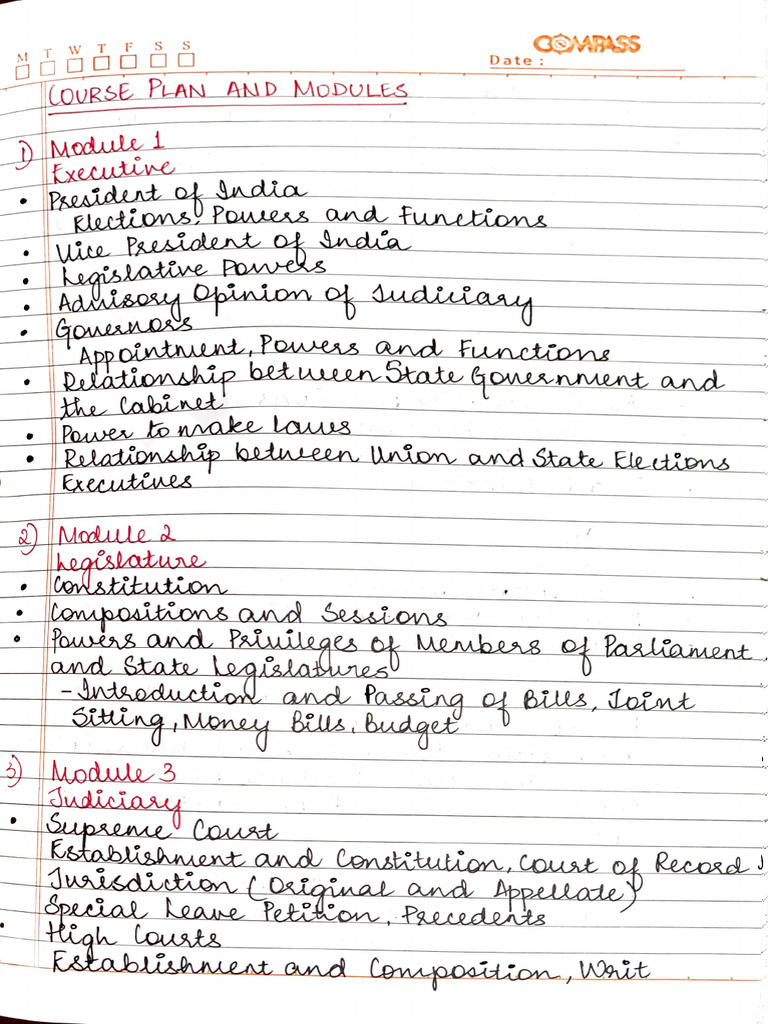 M T W T F S S
COMPASS
Date :
COURSE PLAN AND MODULES
1) Module 1
Executive
• President of India
Elections, Powers and Functions
• Vice President of India
• Legislative Powers
• Advisory Opinion of Judiciary
• Governors
Appointment, Powers and Functions
• Relationship between State Government and
the Cabinet
• Power to make Laws
• Relationship between Union and State Elections
Executives
2) Module 2
Legislature
• Constitution
• Compositions and Sessions
• Powers and Privileges of Members of Parliament
and State Legislatures
- Introduction and Passing of Bills, Joint
Sitting, Money Bills, Budget
3) Module 3
Judiciary
• Supreme Court
Establishment and Constitution, Court of Record
Jurisdiction (Original and Appellate)
Special Leave Petition, Precedents
• High Courts
Establishment and Composition, Writ